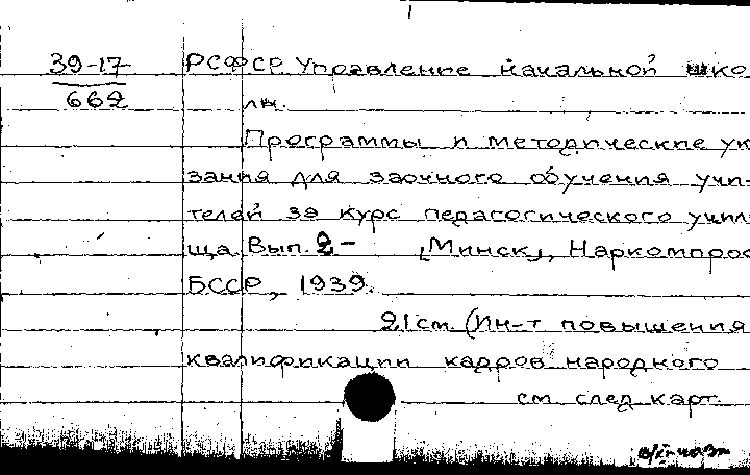 39-17
662
РСФСР Управление начальной шко
лы.
Программы и методические ук
зания для заочного обучения учи-
телей за курс педагогического учил
ща. Вып. 2 - [Минск], Наркомпрос
БССР, 1939.
21 см. (Ин-т повышения
квалификации кадров народного
см. след. карт.